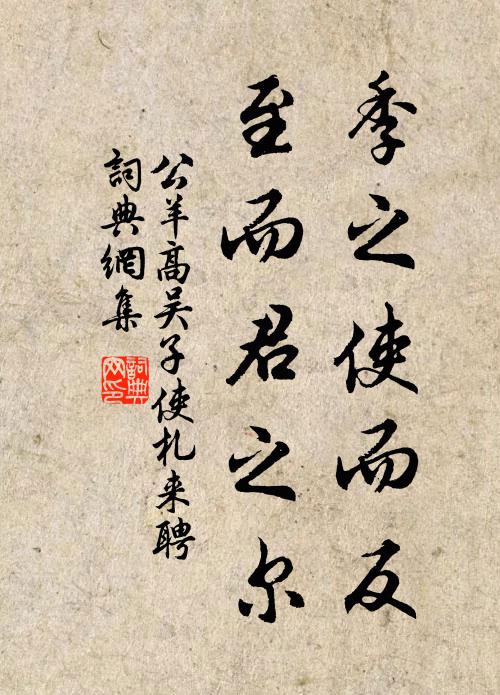 季之使而反
至而君之尔
公羊高吴子使札来聘
詞典網集
詞典
网印